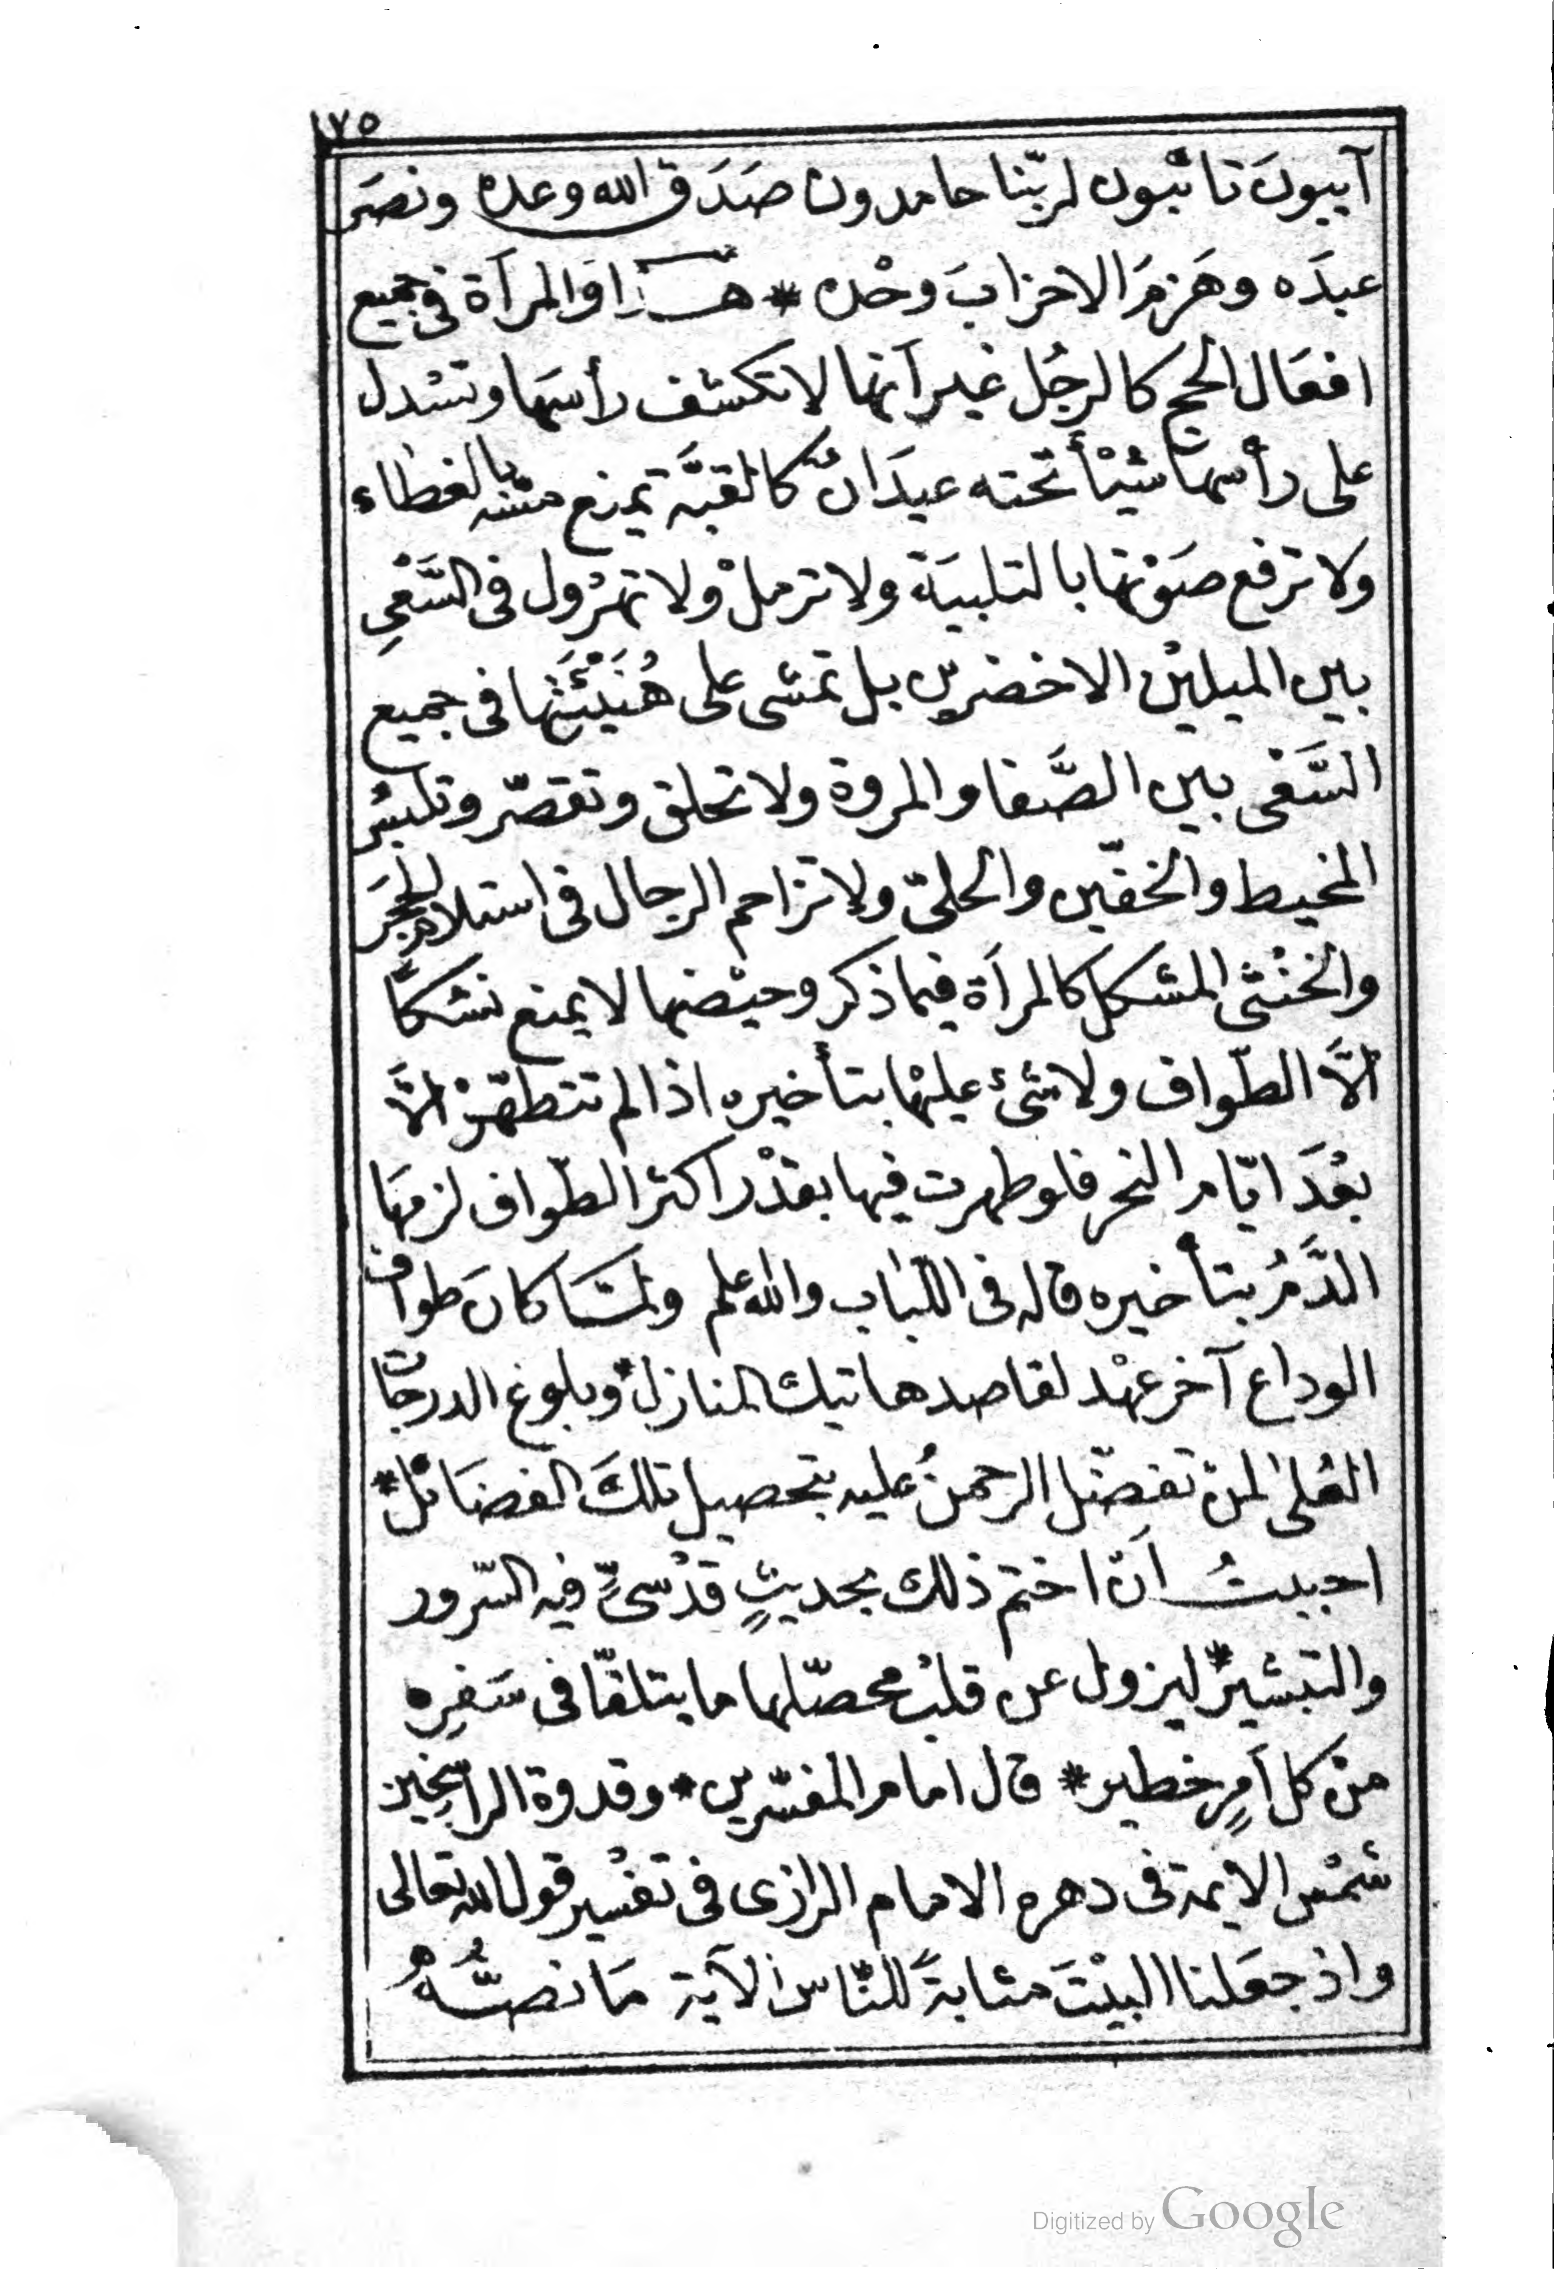 ١٧٥
آيبونَ تائبون لربّنا حامدون صَدَق الله وعده ونصَر
عبدَه وهَزمَ الاحزابَ وحْده * هذا والمرأة فى جميع
افعَال الحج كالرجُل غير أنها لا تكشف رأسَها وتسْدل
على رأسها شيْأ تحته عيدَانٌ كالقبَّة تمنع مسّه بالغطاء
ولا ترفع صَوْتها بالتلبيَة ولا ترملْ ولا تهرْول فى السَّعْىِ
بين الميليْن الاخضرين بل تمشى على هُنَيْئَتِها فى جميع
السَّعْى بين الصَّفا والمروة ولا تحلق وتقصّر وتلبسُ
المخيط والخفّين والحلىّ ولا تزاحم الرجال فى استلام الحجَر
والخنْثى المشكل كالمرأة فيما ذكر وحيْضها لا يمنع نسْكاً
الَّا الطّواف ولا شئ عليْها بتأخيره اذا لم تتطهّرْ الَّا
بعْدَ ايّام النحر فلو طهرت فيها بقدْر اكثر الطّواف لزمهَا
الدَّمُ بتأخيره قاله فى اللّباب والله اعلم ولمّا كانَ طواف
الوداع آخر عهْد لقاصد هاتيك المنازل * وبلوغ الدرجات
العُلى لمنْ تفضّل الرحمنُ عليه بتحصيل تلكَ الفضَائل *
احببتُ اَنْ اختم ذلك بحديثٍ قدْسىٍّ فيه السّرور
والتبْشير * ليزول عن قلبْ محصّلها ما يتلقّا فى سَفرِه
منْ كل أمرٍ خطير * قال امام المفسّرين * وقدوة الراسخين
شمْس الايمة فى دهره الامام الرازى فى تفسْير قول الله تعالى
واذ جعَلنا البيْتَ مثابةً للنّاس الآية مَا نصُّهُ
Digitized by Google